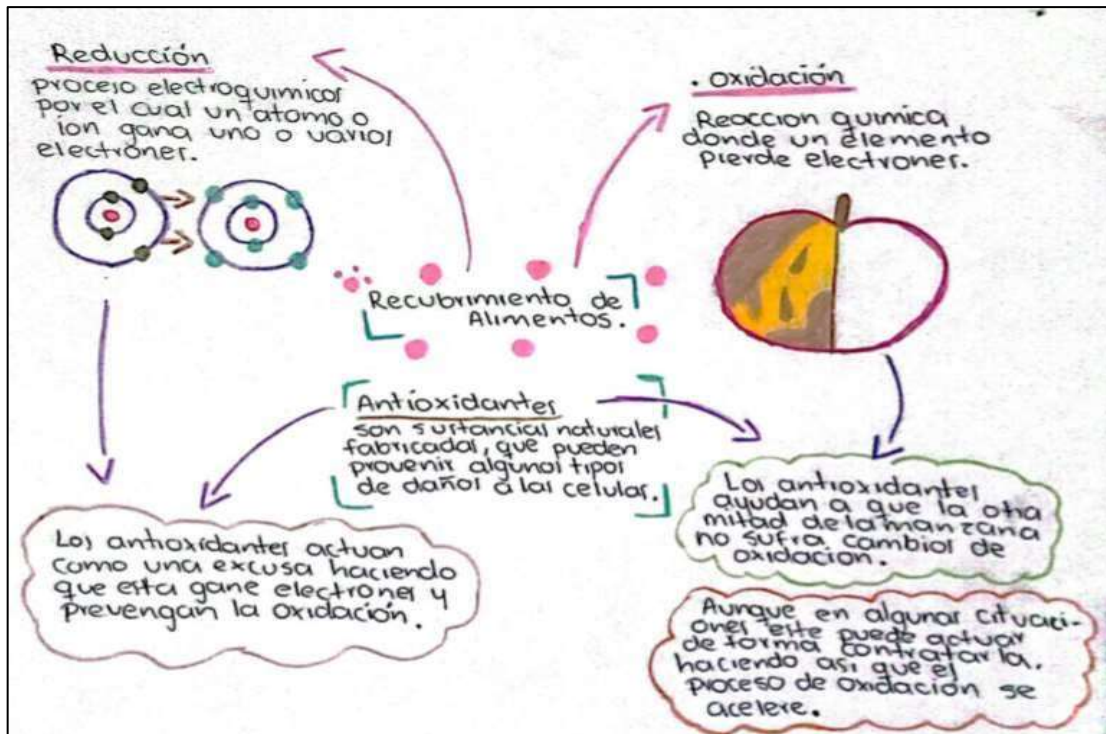 Reducción
proceso electroquimicos
por el cual un atomo o
ion gana uno o varios
electrones.
. oxidación
Reaccion quimica
donde un elemento
pierde electrones.
Recubrimiento de
Alimentos.
Antioxidantes
son sustancias naturales
fabricadas, que pueden
provenir algunos tipos
de daños a las celulas.
Los antioxidantes actuan
como una excusa haciendo
que esta gane electrones y
prevengan la oxidación.
Los antioxidantes
ayudan a que la otra
mitad de la manzana
no sufra cambios de
oxidacion.
Aunque en algunas cituaci-
ones este puede actuar
de forma contratar la.
haciendo asi que el
proceso de oxidación se
acelere.